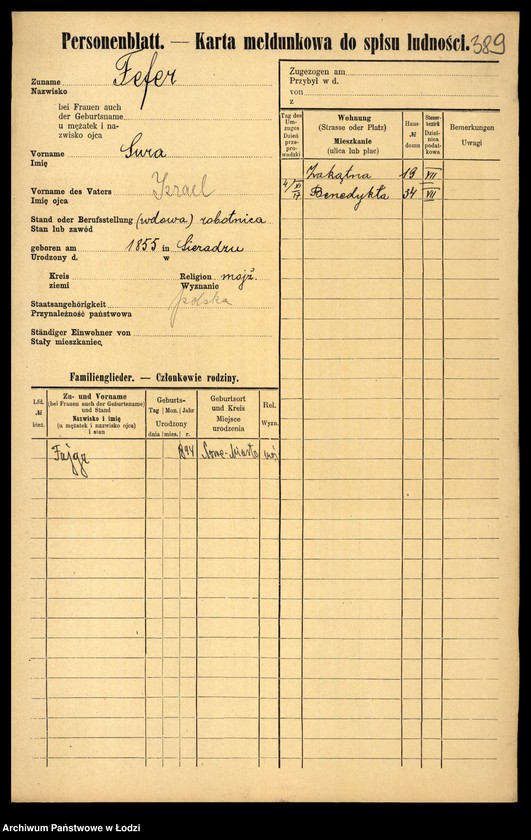 Personenblatt. — Karta meldunkowa do spisu ludności.
389
Zuname Fefer
Nazwisko
bei Frauen auch
der Geburtsname
u mężatek i na-
zwisko ojca
Vorname Sura
Imię
Vorname des Vaters Izrael
Imię ojca
Stand oder Berufsstellung (wdowa) robotnica
Stan lub zawód
geboren am 1855 in Sieradzu
Urodzony d. w
Kreis Religion mojż.
ziemi Wyznanie
Staatsangehörigkeit polska
Przynależność państwowa
Ständiger Einwohner von
Stały mieszkaniec
Zugezogen am
Przybył w d.
von
z
Tag des Um-zuges Dzień prze-prowadzki
Wohnung (Strasse oder Platz) Mieszkanie (ulica lub plac)
Haus № domu
Steuer-bezirk Dziel-nica podat-kowa
Bemerkungen Uwagi
Zakątna 19 VII
4/XI 17 Benedykta 34 VII
Familienglieder. — Członkowie rodziny.
Lfd. № bież.
Zu- und Vorname (bei Frauen auch der Geburtsname) und Stand Nazwisko i imię (u mężatek i nazwisko ojca) i stan
Geburts- Tag Mon. Jahr Urodzony dnia mies. r.
Geburtsort und Kreis Miejsce urodzenia
Rel. Wyzn.
Fajga 894 Nowe-Miasto
Archiwum Państwowe w Łodzi